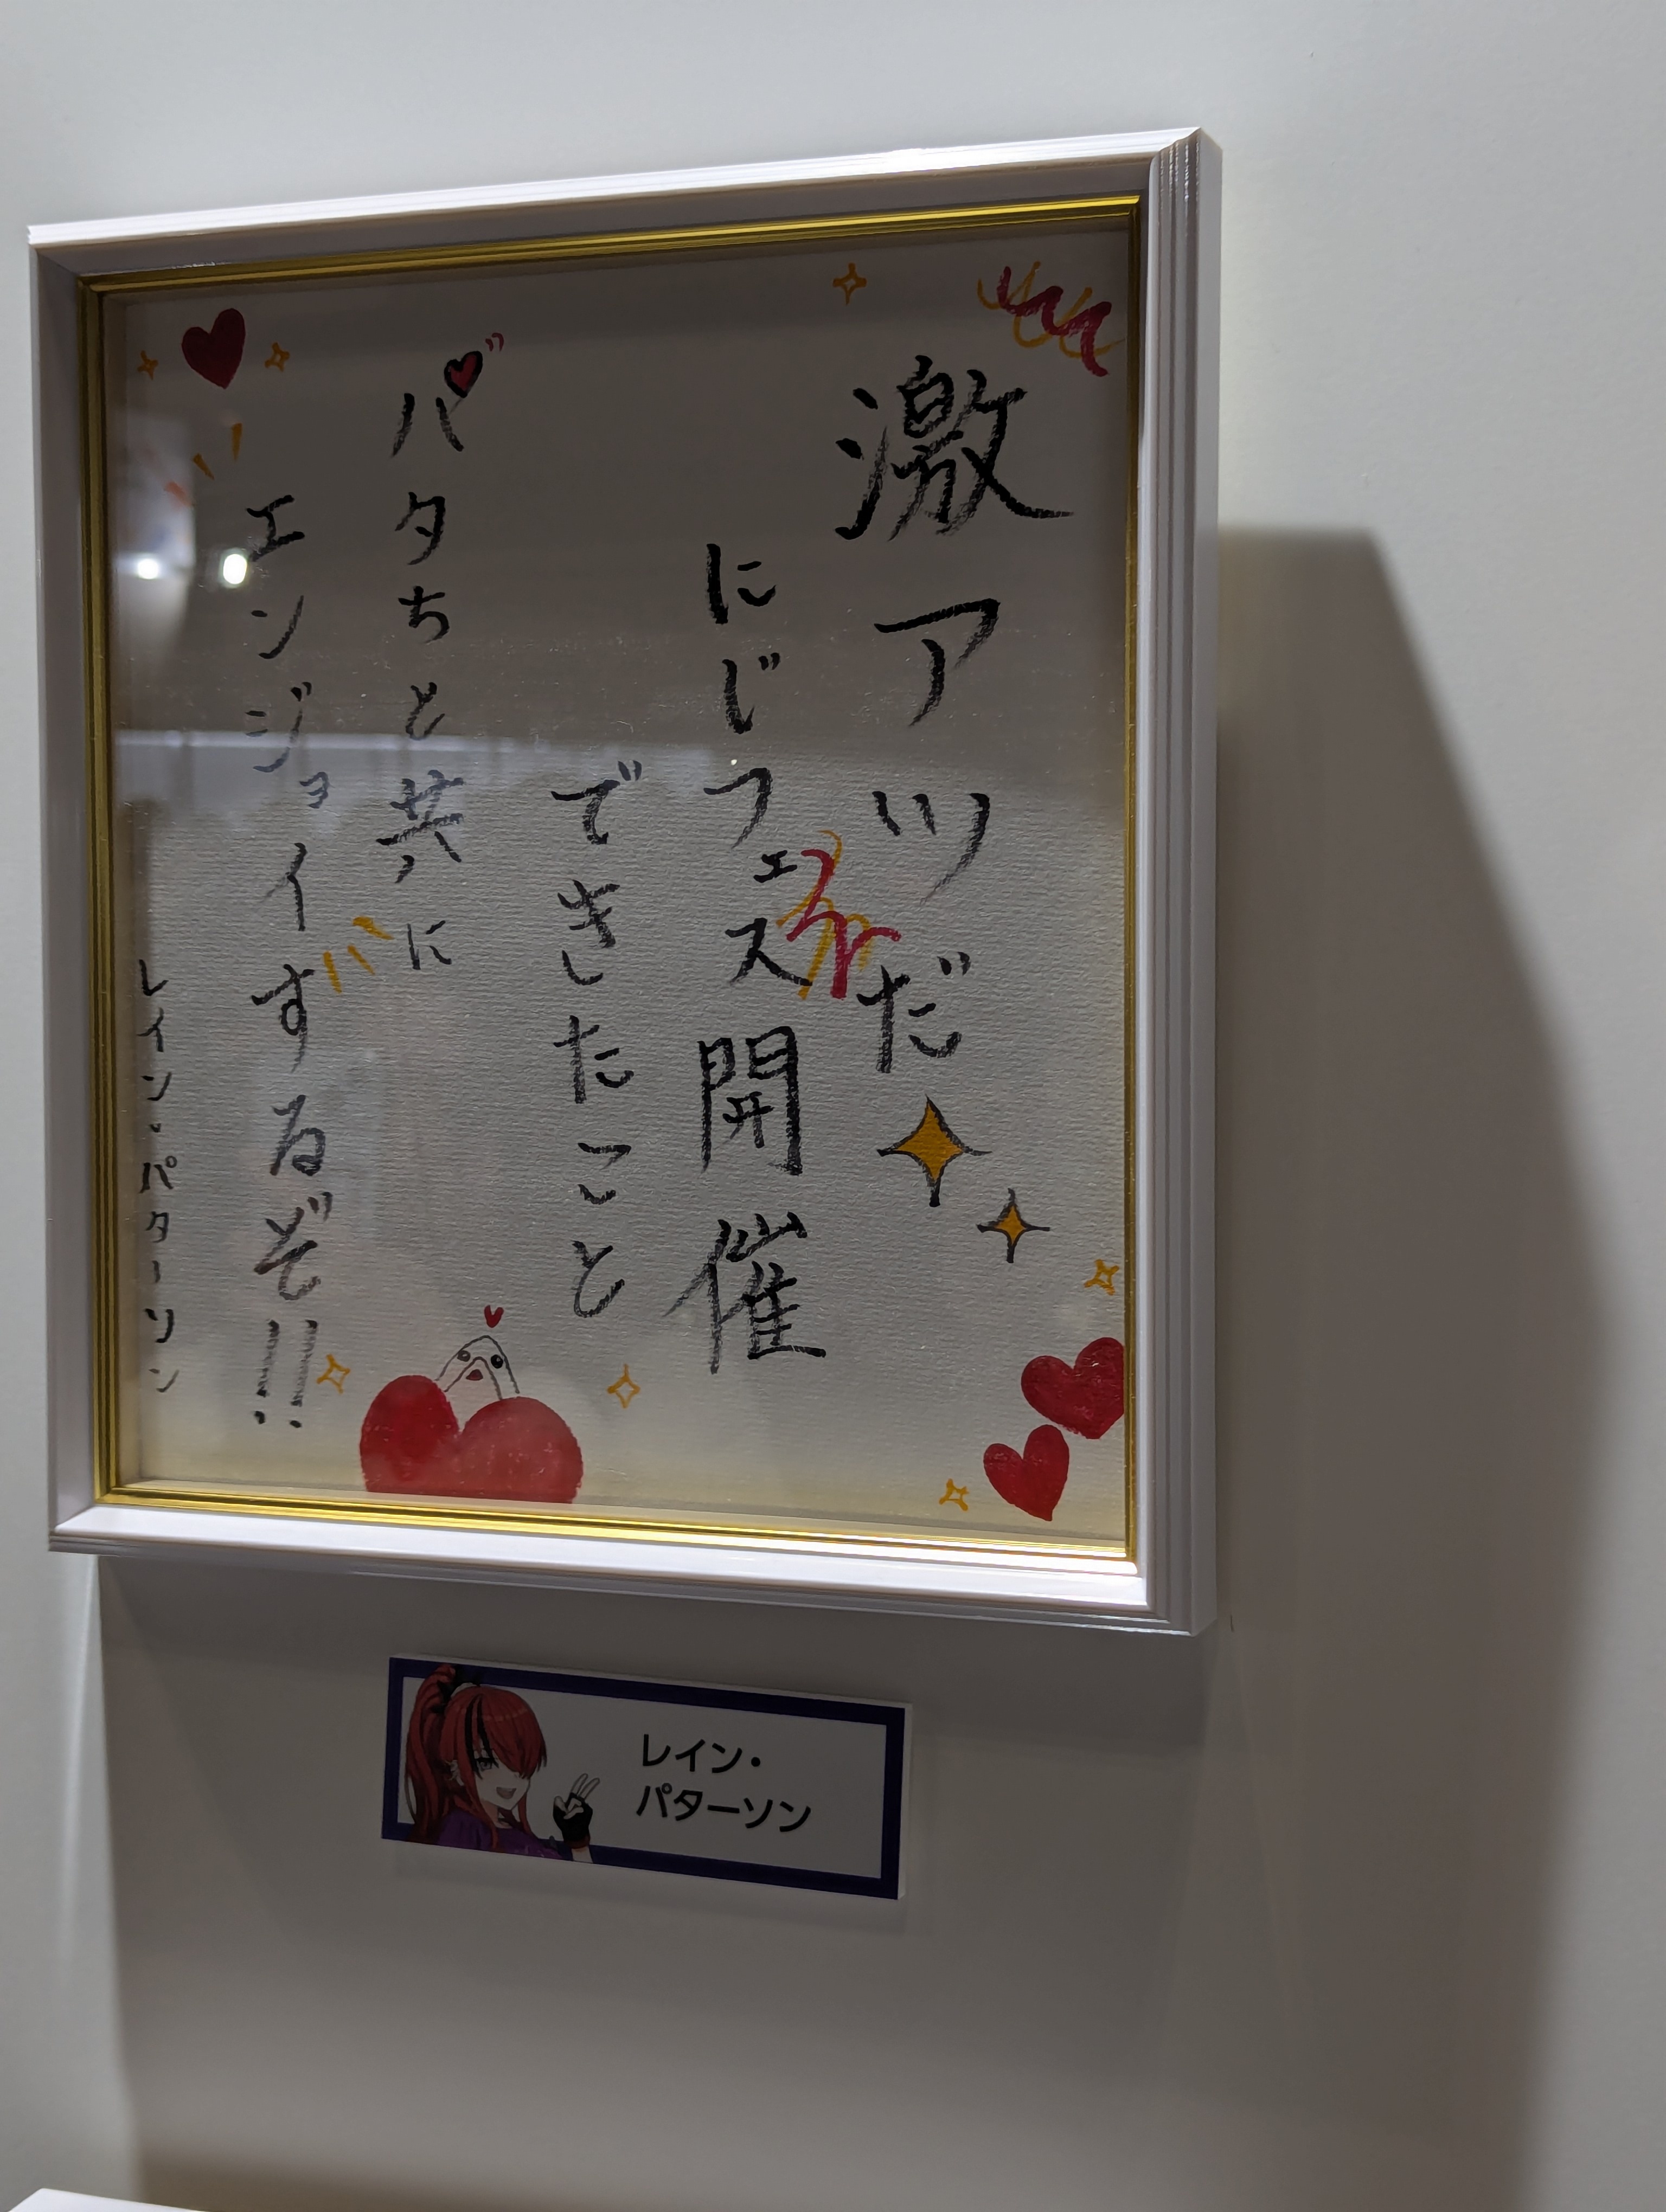 激アツだ
にじフェス開催
できたこと
パタちと共に
エンジョイするぞ!!
レイン・パターソン
レイン・
パターソン